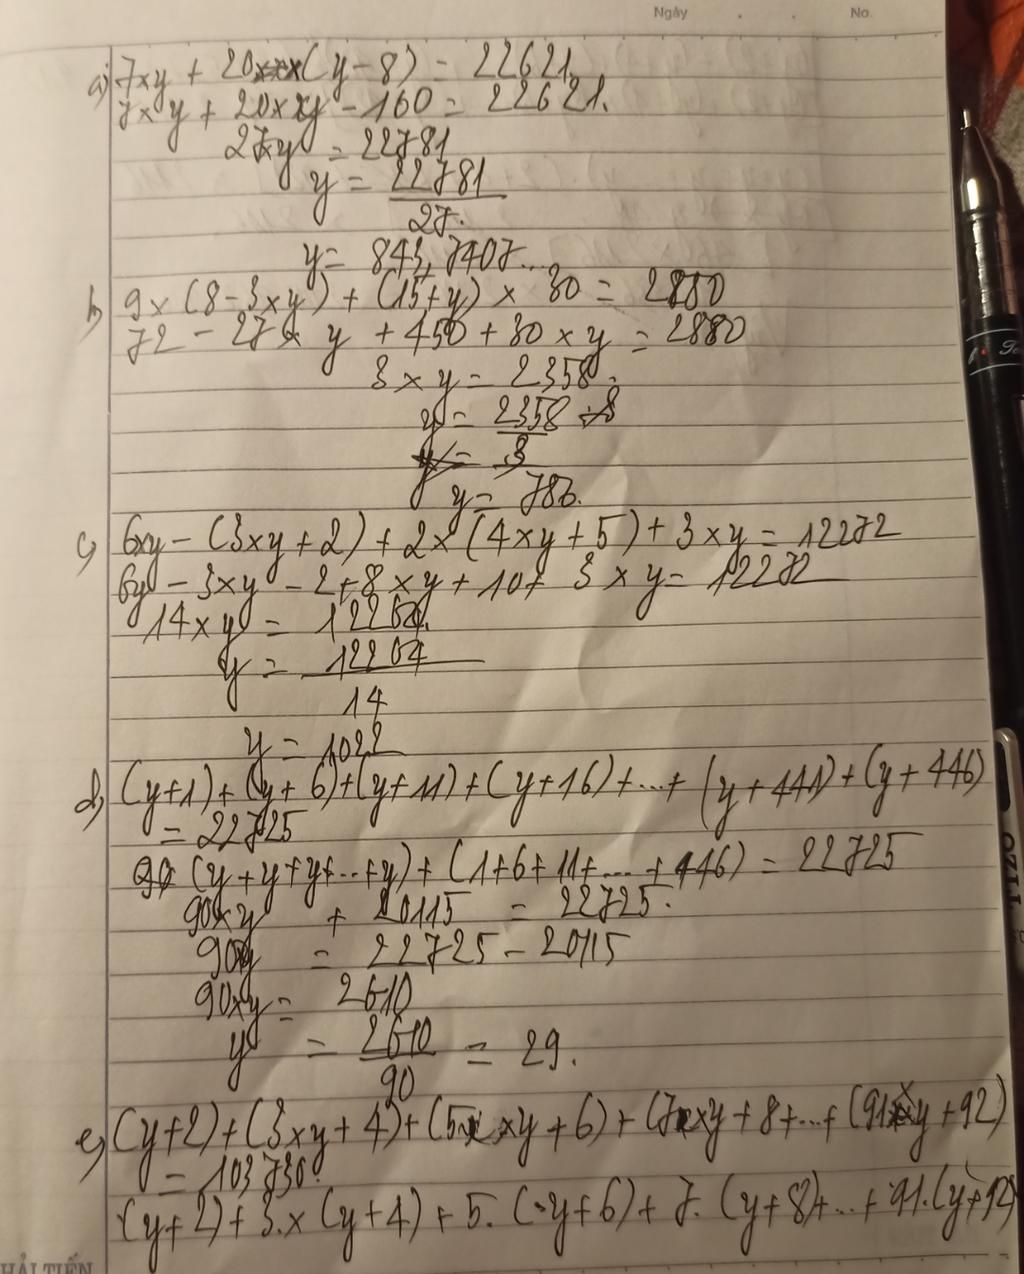 Ngày . . No.
a) 7xy + 20x(y-8) = 22621.
7xy + 20xy - 160 = 22621.
27xy = 22781
y = 22781
27.
y = 843,7407...
b) 9x(8-3xy) + (15+y) x 30 = 2880
72 - 27x y + 450 + 30 x y = 2880
3 x y = 2358.
y = 2358
3
y = 786.
c) 6xy - (3xy+2) + 2x(4xy+5) + 3xy = 12272
6y - 3xy - 2 + 8xy + 10 + 3xy = 12272
14xy = 12264.
y = 12264
14
y = 1022
d) (y+1)+(y+6)+(y+11)+(y+16)+...+(y+441)+(y+446)
= 22725
(y+y+y+...+y)+(1+6+11+...+446) = 22725
90xy + 20115 = 22725.
90xy = 22725 - 20115
90xy = 2610
y = 2610 = 29.
90
e) (y+2)+(3xy+4)+(5xy+6)+(7xy+8+...+(91xy+92)
= 103730.
(y+2)+3.x(y+4)+5.(y+6)+7.(y+8)+...+91.(y+92)
HẢI TIẾN